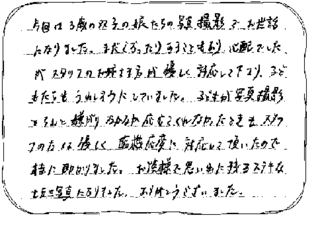 今回は3歳の双子の娘たちの写真撮影でお世話
になりました。まだぐったりすることもあり、心配でした
が スタッフのお姉さん方が優しく対応して下さり、子ど
もたちもうれしそうにしていました。子どもが写真撮影
を 嫌がり なかなか応じてくれなかったときも スタッ
フの方は 優しく 臨機応変に 対応して頂いたので
特に助かりました。お陰様で思い出に残るステキな
七五三写真になりました。ありがとうございました。